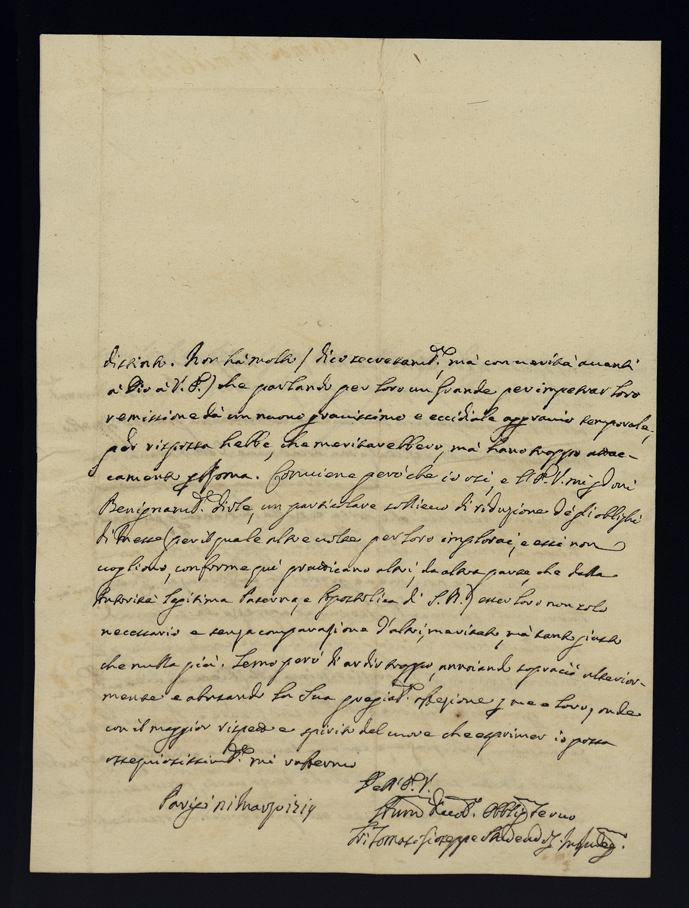 distinto. Non hà molto / dico secretam.te, mà con verità avanti
à Dio à V. P.) che parlando per loro un Grande per impetrar loro
remissione dà un nuovo gravissimo e eccidiale aggravio temporale,
per risposta hebbe, che meritarebbero, mà hano troppo attac-
camento p Roma. Conviene però che io osi, e la P. V. mi p doni
Benignam.te dirle, un particolare sollievo di riduzione degli oblighi
di Messe (per il quale altre volte per loro implorai, e essi non
vogliono, conforme quì praticano altri, da altra parte, che dalla
Autorità legitima Paterna, e Apostolica di S. B.) esser loro non solo
necessario e senza comparazione d'altri, meritato, mà tanto giusto
che nulla più. Temo però di ardir troppo, annoiando sopraciò ulterior-
mente e abusando la sua pregiat. affezione p me e loro, onde
con il maggior rispetto e spirito del cuore che esprimer io possa
ossequiosissim.te mi raffermo
Della P. V.
Parigi Marzo
Um Devot. Obblig Servo
F. Tomaso Giuseppe